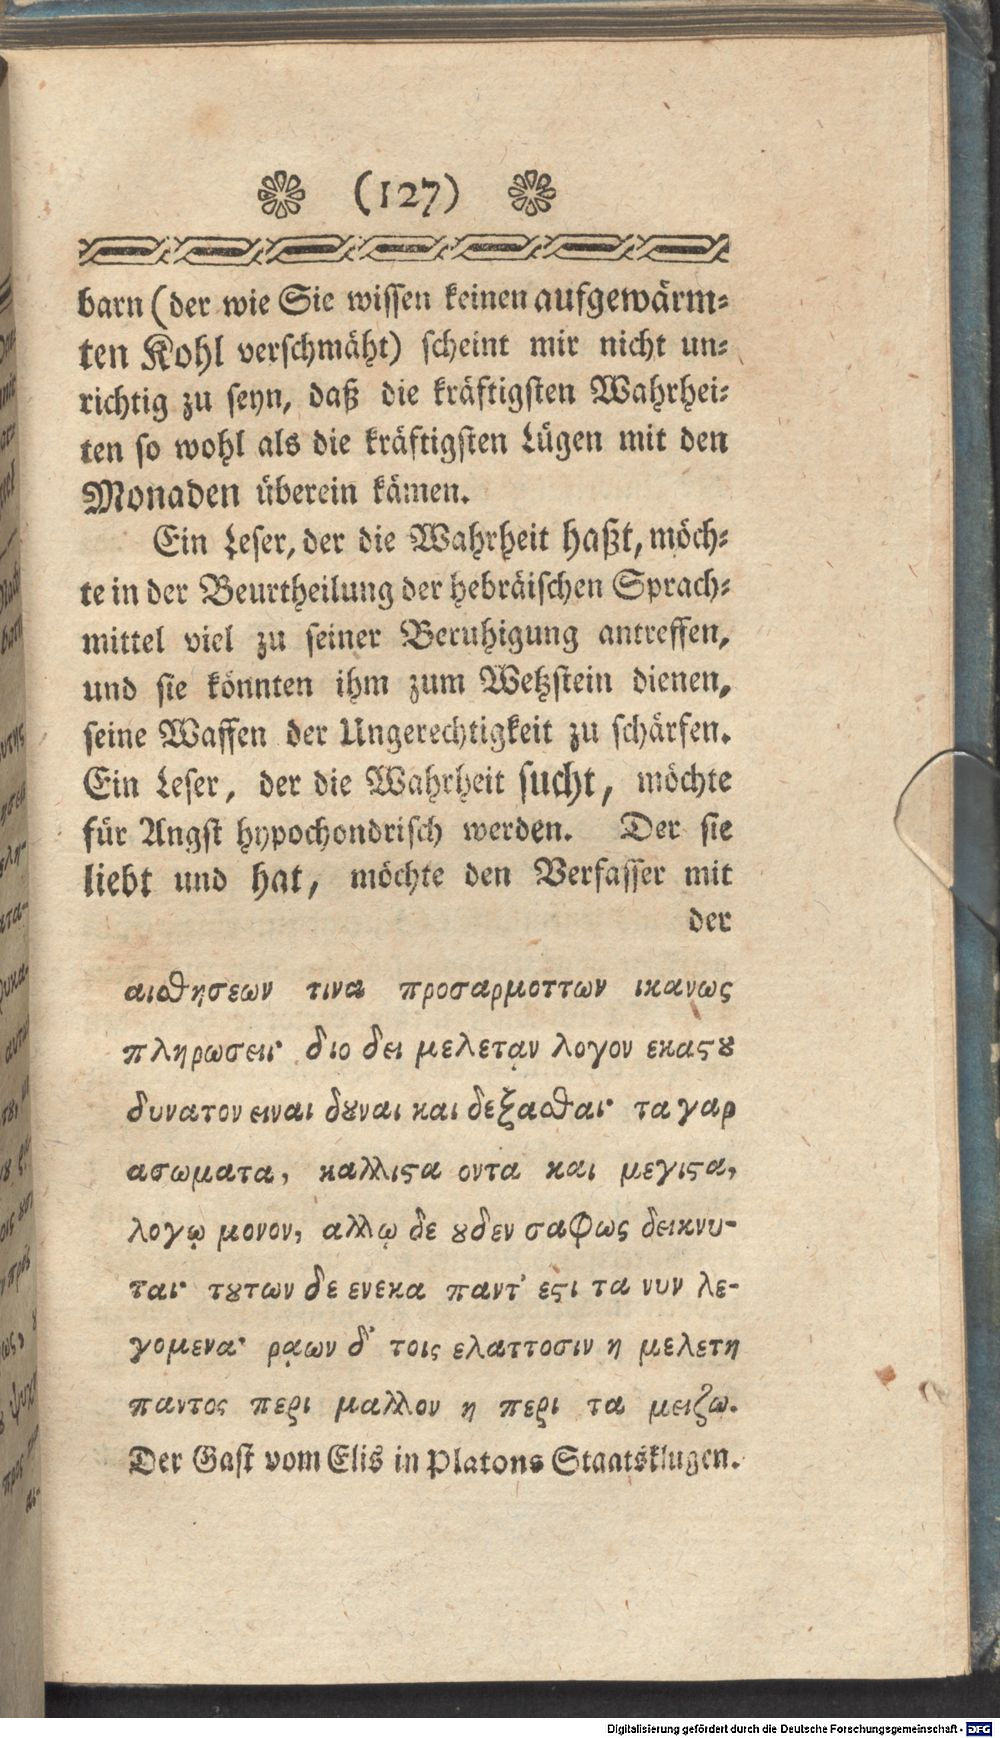 (127)
barn (der wie Sie wissen keinen aufgewärm-
ten Kohl verschmäht) scheint mir nicht un-
richtig zu seyn, daß die kräftigsten Wahrhei-
ten so wohl als die kräftigsten Lügen mit den
Monaden überein kämen.
Ein Leser, der die Wahrheit haßt, möch-
te in der Beurtheilung der hebräischen Sprach-
mittel viel zu seiner Beruhigung antreffen,
und sie könnten ihm zum Wetzstein dienen,
seine Waffen der Ungerechtigkeit zu schärfen.
Ein Leser, der die Wahrheit sucht, möchte
für Angst hypochondrisch werden. Der sie
liebt und hat, möchte den Verfasser mit
der
αισθησεων τινα προσαρμοττων ικανως
πληρωσει· διο δει μελετᾳν λογον εκαςȣ
δυνατον ειναι δȣναι και δεξασθαι· τα γαρ
ασωματα, καλλιςα οντα και μεγιςα,
λογῳ μονον, αλλῳ δε ȣδεν σαφως δεικνυ-
ται· τȣτων δε ενεκα παντ' εςι τα νυν λε-
γομενα· ρᾳων δ' τοις ελαττοσιν η μελετη
παντος περι μαλλον η περι τα μειζω.
Der Gast vom Elis in Platons Staatsklugen.
Digitalisierung gefördert durch die Deutsche Forschungsgemeinschaft - DFG